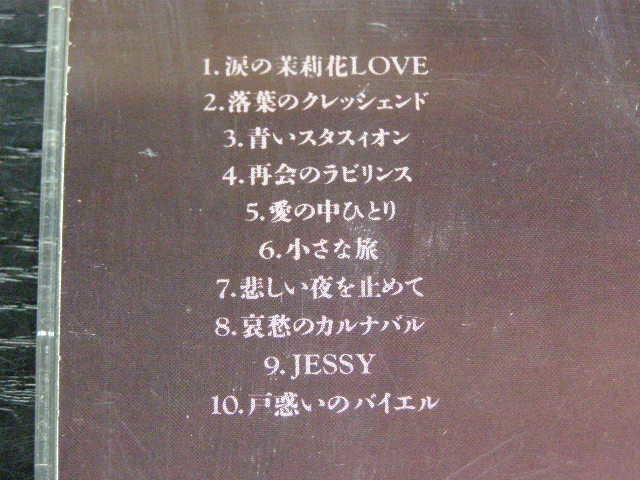 1. 涙の茉莉花LOVE
2. 落葉のクレッシェンド
3. 青いスタスィオン
4. 再会のラビリンス
5. 愛の中ひとり
6. 小さな旅
7. 悲しい夜を止めて
8. 哀愁のカルナバル
9. JESSY
10. 戸惑いのバイエル